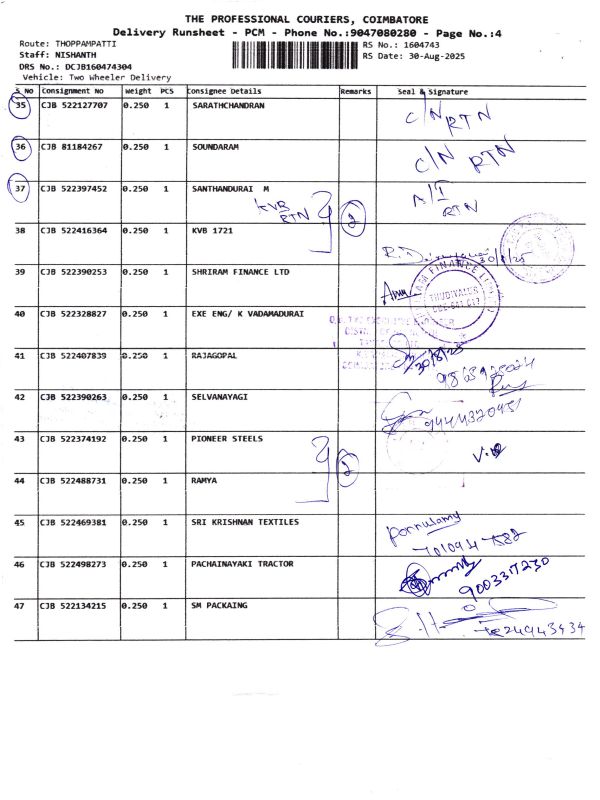 THE PROFESSIONAL COURIERS, COIMBATORE
Delivery Runsheet - PCM - Phone No.:9047080280 - Page No.:4
Route: THOPPAMPATTI
RS No.: 1604743
Staff: NISHANTH
RS Date: 30-Aug-2025
DRS No.: DCJB160474304
Vehicle: Two Wheeler Delivery
S No Consignment No Weight PCS Consignee Details Remarks Seal & Signature
35 CJB 522127707 0.250 1 SARATHCHANDRAN C/N RTN
36 CJB 81184267 0.250 1 SOUNDARAM C/N RTN
37 CJB 522397452 0.250 1 SANTHANDURAI M A/I RTN
KVB RTN 2
38 CJB 522416364 0.250 1 KVB 1721
30/8/25
39 CJB 522390253 0.250 1 SHRIRAM FINANCE LTD
FINANCE
THUDIYALUR
40 CJB 522328827 0.250 1 EXE ENG/ K VADAMADURAI
41 CJB 522407839 0.250 1 RAJAGOPAL
30/8/25
42 CJB 522390263 0.250 1 SELVANAYAGI
43 CJB 522374192 0.250 1 PIONEER STEELS
2
44 CJB 522488731 0.250 1 RAMYA
45 CJB 522469381 0.250 1 SRI KRISHNAN TEXTILES
46 CJB 522498273 0.250 1 PACHAINAYAKI TRACTOR
47 CJB 522134215 0.250 1 SM PACKAING